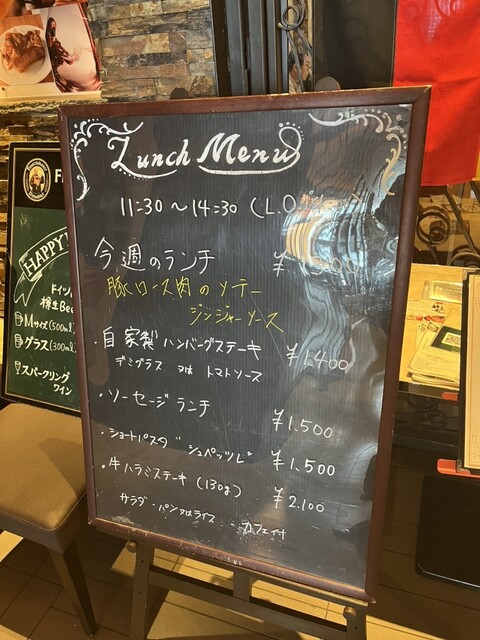 Lunch Menu
11:30 ~ 14:30 (L.O
今週のランチ ¥
豚ロース肉のソテー
ジンジャーソース
・自家製ハンバーグステーキ ¥1,400
デミグラス 又は トマトソース
・ソーセージランチ ¥1,500
・ショートパスタ"シュペッツレ" ¥1,500
・牛ハラミステーキ (130g) ¥2,100
サラダ・パン又はライス ・カフェ付
HAPPY
ドイツ
樽生Bee
Mサイズ(500ml
グラス(300ml
スパークリング
ワイン